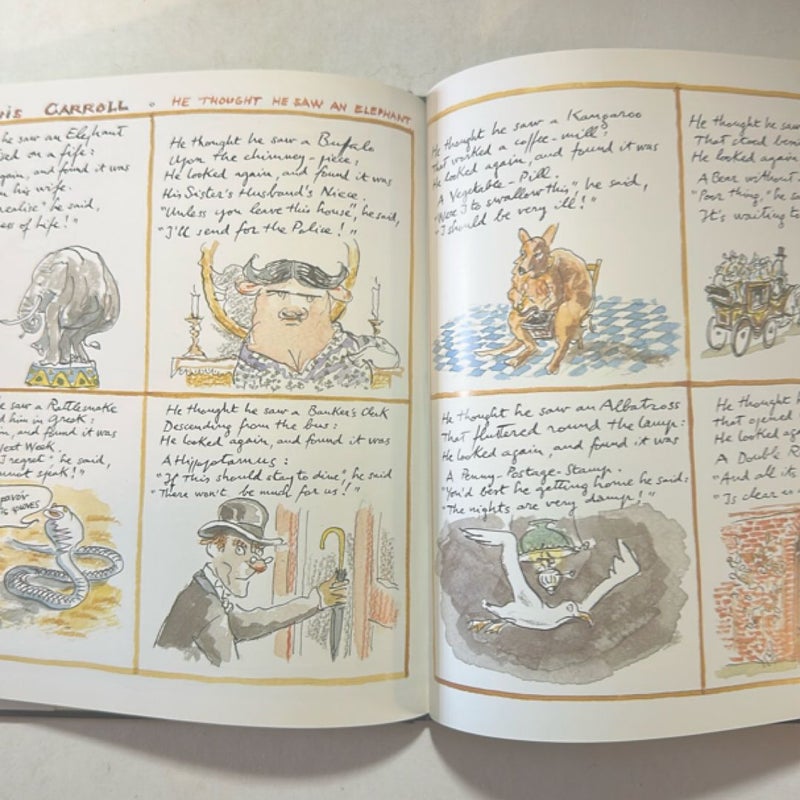 CARROLL • HE THOUGHT HE SAW AN ELEPHANT
he saw an Elephant
on a fife:
and found it was
his wife.
realise" he said,
of life!"
He thought he saw a Buffalo
Upon the chimney-piece:
He looked again, and found it was
His Sister's Husband's Niece.
"Unless you leave this house", he said,
"I'll send for the Police!"
saw a Rattlesnake
him in Greek:
and found it was
Next Week.
I regret" he said,
speak!"
He thought he saw a Banker's Clerk
Descending from the bus:
He looked again, and found it was
A Hippopotamus:
"If this should stay to dine", he said
"There won't be much for us!"
He thought he saw a Kangaroo
That worked a coffee-mill:
He looked again, and found it was
A Vegetable-Pill.
"Were I to swallow this", he said,
"I should be very ill!"
He thought he saw
That stood
He looked again
A Bear without
"Poor thing," he
It's waiting to
He thought he saw an Albatross
That fluttered round the lamp:
He looked again, and found it was
A Penny-Postage-Stamp.
"You'd best be getting home he said:
"The nights are very damp!"
He thought
That opened
He looked
A Double
"And all its
"Is clear as